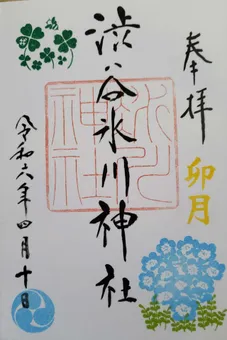 奉拝
卯月
渋谷氷川神社
氷川神社
令和六年四月十日